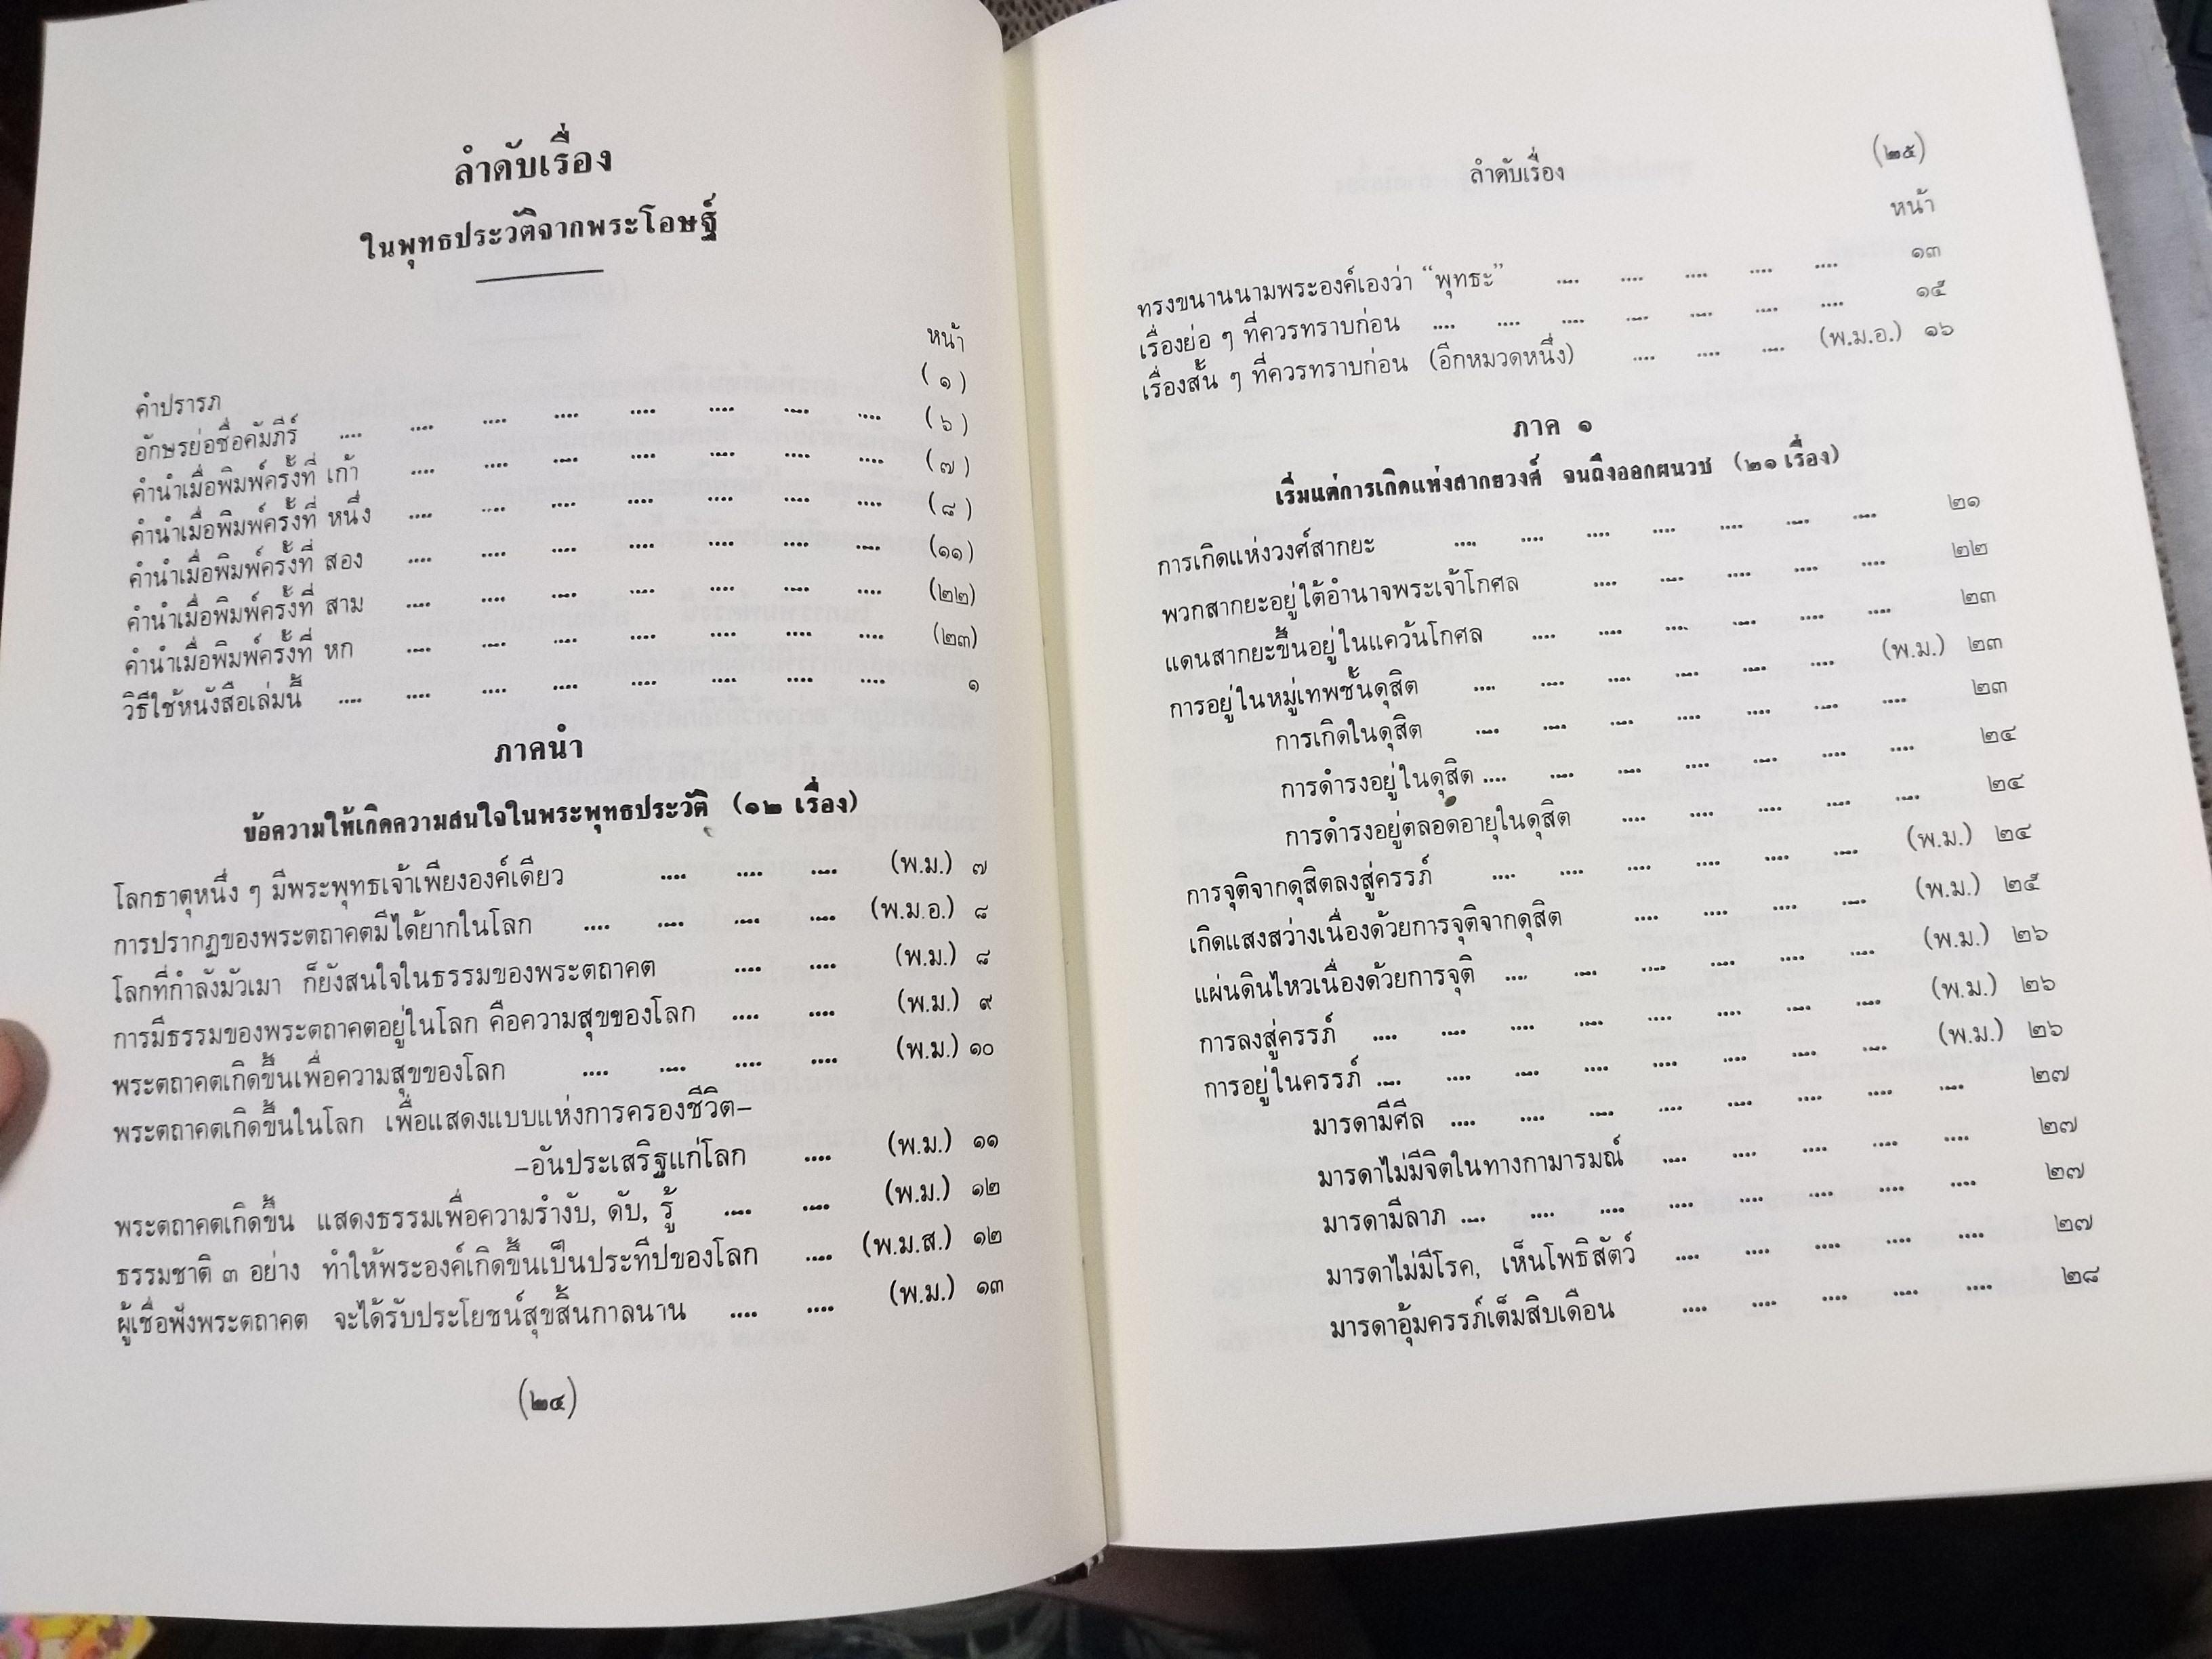 ลำดับเรื่อง
ในพุทธประวัติจากพระโอษฐ์
หน้า
คำปรารภ .... .... .... .... .... .... (๑)
อักษรย่อชื่อคัมภีร์ .... .... .... .... .... .... .... .... (๖)
คำนำเมื่อพิมพ์ครั้งที่ เก้า .... .... .... .... .... .... .... (๗)
คำนำเมื่อพิมพ์ครั้งที่ หนึ่ง .... .... .... .... .... .... .... (๘)
คำนำเมื่อพิมพ์ครั้งที่ สอง .... .... .... .... .... .... .... (๑๑)
คำนำเมื่อพิมพ์ครั้งที่ สาม .... .... .... .... .... .... .... (๒๒)
คำนำเมื่อพิมพ์ครั้งที่ หก .... .... .... .... .... .... .... (๒๓)
วิธีใช้หนังสือเล่มนี้ .... .... .... .... .... .... .... .... ๑
ภาคนำ
ข้อความให้เกิดความสนใจในพระพุทธประวัติ (๑๒ เรื่อง)
โลกธาตุหนึ่ง ๆ มีพระพุทธเจ้าเพียงองค์เดียว .... .... .... (พ.ม.) ๗
การปรากฏของพระตถาคตมีได้ยากในโลก .... .... .... .... (พ.ม.อ.) ๘
โลกที่กำลังมัวเมา ก็ยังสนใจในธรรมของพระตถาคต .... .... (พ.ม.) ๘
การมีธรรมของพระตถาคตอยู่ในโลก คือความสุขของโลก .... .... (พ.ม.) ๙
พระตถาคตเกิดขึ้นเพื่อความสุขของโลก .... .... .... .... (พ.ม.) ๑๐
พระตถาคตเกิดขึ้นในโลก เพื่อแสดงแบบแห่งการครองชีวิต–
–อันประเสริฐแก่โลก .... (พ.ม.) ๑๑
พระตถาคตเกิดขึ้น แสดงธรรมเพื่อความรำงับ, ดับ, รู้ .... .... (พ.ม.) ๑๒
ธรรมชาติ ๓ อย่าง ทำให้พระองค์เกิดขึ้นเป็นประทีปของโลก .... (พ.ม.ส.) ๑๒
ผู้เชื่อฟังพระตถาคต จะได้รับประโยชน์สุขสิ้นกาลนาน .... .... (พ.ม.) ๑๓
(๒๔)
ลำดับเรื่อง (๒๕)
หน้า
ทรงขนานนามพระองค์เองว่า “พุทธะ” .... .... .... .... .... ๑๓
เรื่องย่อ ๆ ที่ควรทราบก่อน .... .... .... .... .... .... .... ๑๕
เรื่องสั้น ๆ ที่ควรทราบก่อน (อีกหมวดหนึ่ง) .... .... .... (พ.ม.อ.) ๑๖
ภาค ๑
เริ่มแต่การเกิดแห่งสากยวงศ์ จนถึงออกผนวช (๒๑ เรื่อง)
การเกิดแห่งวงศ์สากยะ .... .... .... .... .... .... .... ๒๑
พวกสากยะอยู่ใต้อำนาจพระเจ้าโกศล .... .... .... .... .... ๒๒
แดนสากยะขึ้นอยู่ในแคว้นโกศล .... .... .... .... .... .... ๒๓
การอยู่ในหมู่เทพชั้นดุสิต .... .... .... .... .... .... (พ.ม.) ๒๓
การเกิดในดุสิต .... .... .... .... .... .... .... ๒๓
การดำรงอยู่ในดุสิต .... .... .... .... .... .... .... ๒๔
การดำรงอยู่ตลอดอายุในดุสิต .... .... .... .... .... ๒๔
การจุติจากดุสิตลงสู่ครรภ์ .... .... .... .... .... .... (พ.ม.) ๒๔
เกิดแสงสว่างเนื่องด้วยการจุติจากดุสิต .... .... .... .... (พ.ม.) ๒๕
แผ่นดินไหวเนื่องด้วยการจุติ .... .... .... .... .... .... (พ.ม.) ๒๖
การลงสู่ครรภ์ .... .... .... .... .... .... .... .... (พ.ม.) ๒๖
การอยู่ในครรภ์ .... .... .... .... .... .... .... .... (พ.ม.) ๒๖
มารดามีศีล .... .... .... .... .... .... .... .... ๒๗
มารดาไม่มีจิตในทางกามารมณ์ .... .... .... .... .... ๒๗
มารดามีลาภ .... .... .... .... .... .... .... .... ๒๗
มารดาไม่มีโรค, เห็นโพธิสัตว์ .... .... .... .... .... ๒๗
มารดาอุ้มครรภ์เต็มสิบเดือน .... .... .... .... .... ๒๘